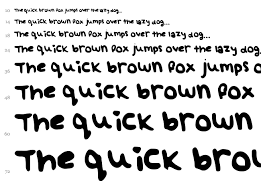 The quick brown fox jumps over the lazy dog...
The quick brown fox jumps over the lazy dog...
The quick brown fox jumps over the lazy dog...
The quick brown fox jumps over the lazy dog
The quick brown fox jumps o
The quick brown fox
The quick brown
The quick bro